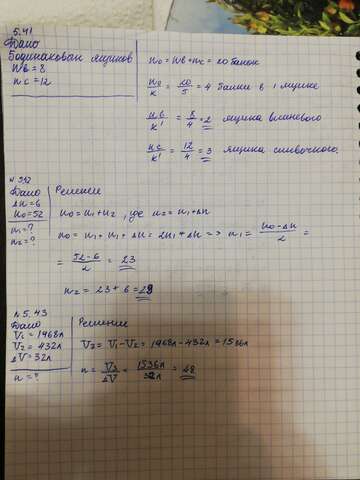 5.41
Дано
5 одинаковых ящиков
nв = 8
nс = 12
n₀ = nв + nс = 20 банок
n₀/k = 20/5 = 4 банки в 1 ящике
nв/k' = 8/4 = 2 ящика
nс/k' = 12/4 = 3 ящика сливочного.
Дано
Δn = 6
n₀ = 52
n₁ = ?
n₂ = ?
Решение
n₀ = n₁ + n₂, где n₂ = n₁ + Δn
n₀ = n₁ + n₁ + Δn = 2n₁ + Δn => n₁ = (n₀ - Δn)/2 =
= (52 - 6)/2 = 23
n₂ = 23 + 6 = 29
№ 5.43
Дано
V₁ = 1968л
V₂ = 432л
ΔV = 32л
n = ?
Решение
V₃ = V₁ - V₂ = 1968л - 432л = 1536л
n = V₃/ΔV = 1536л/32л = 48